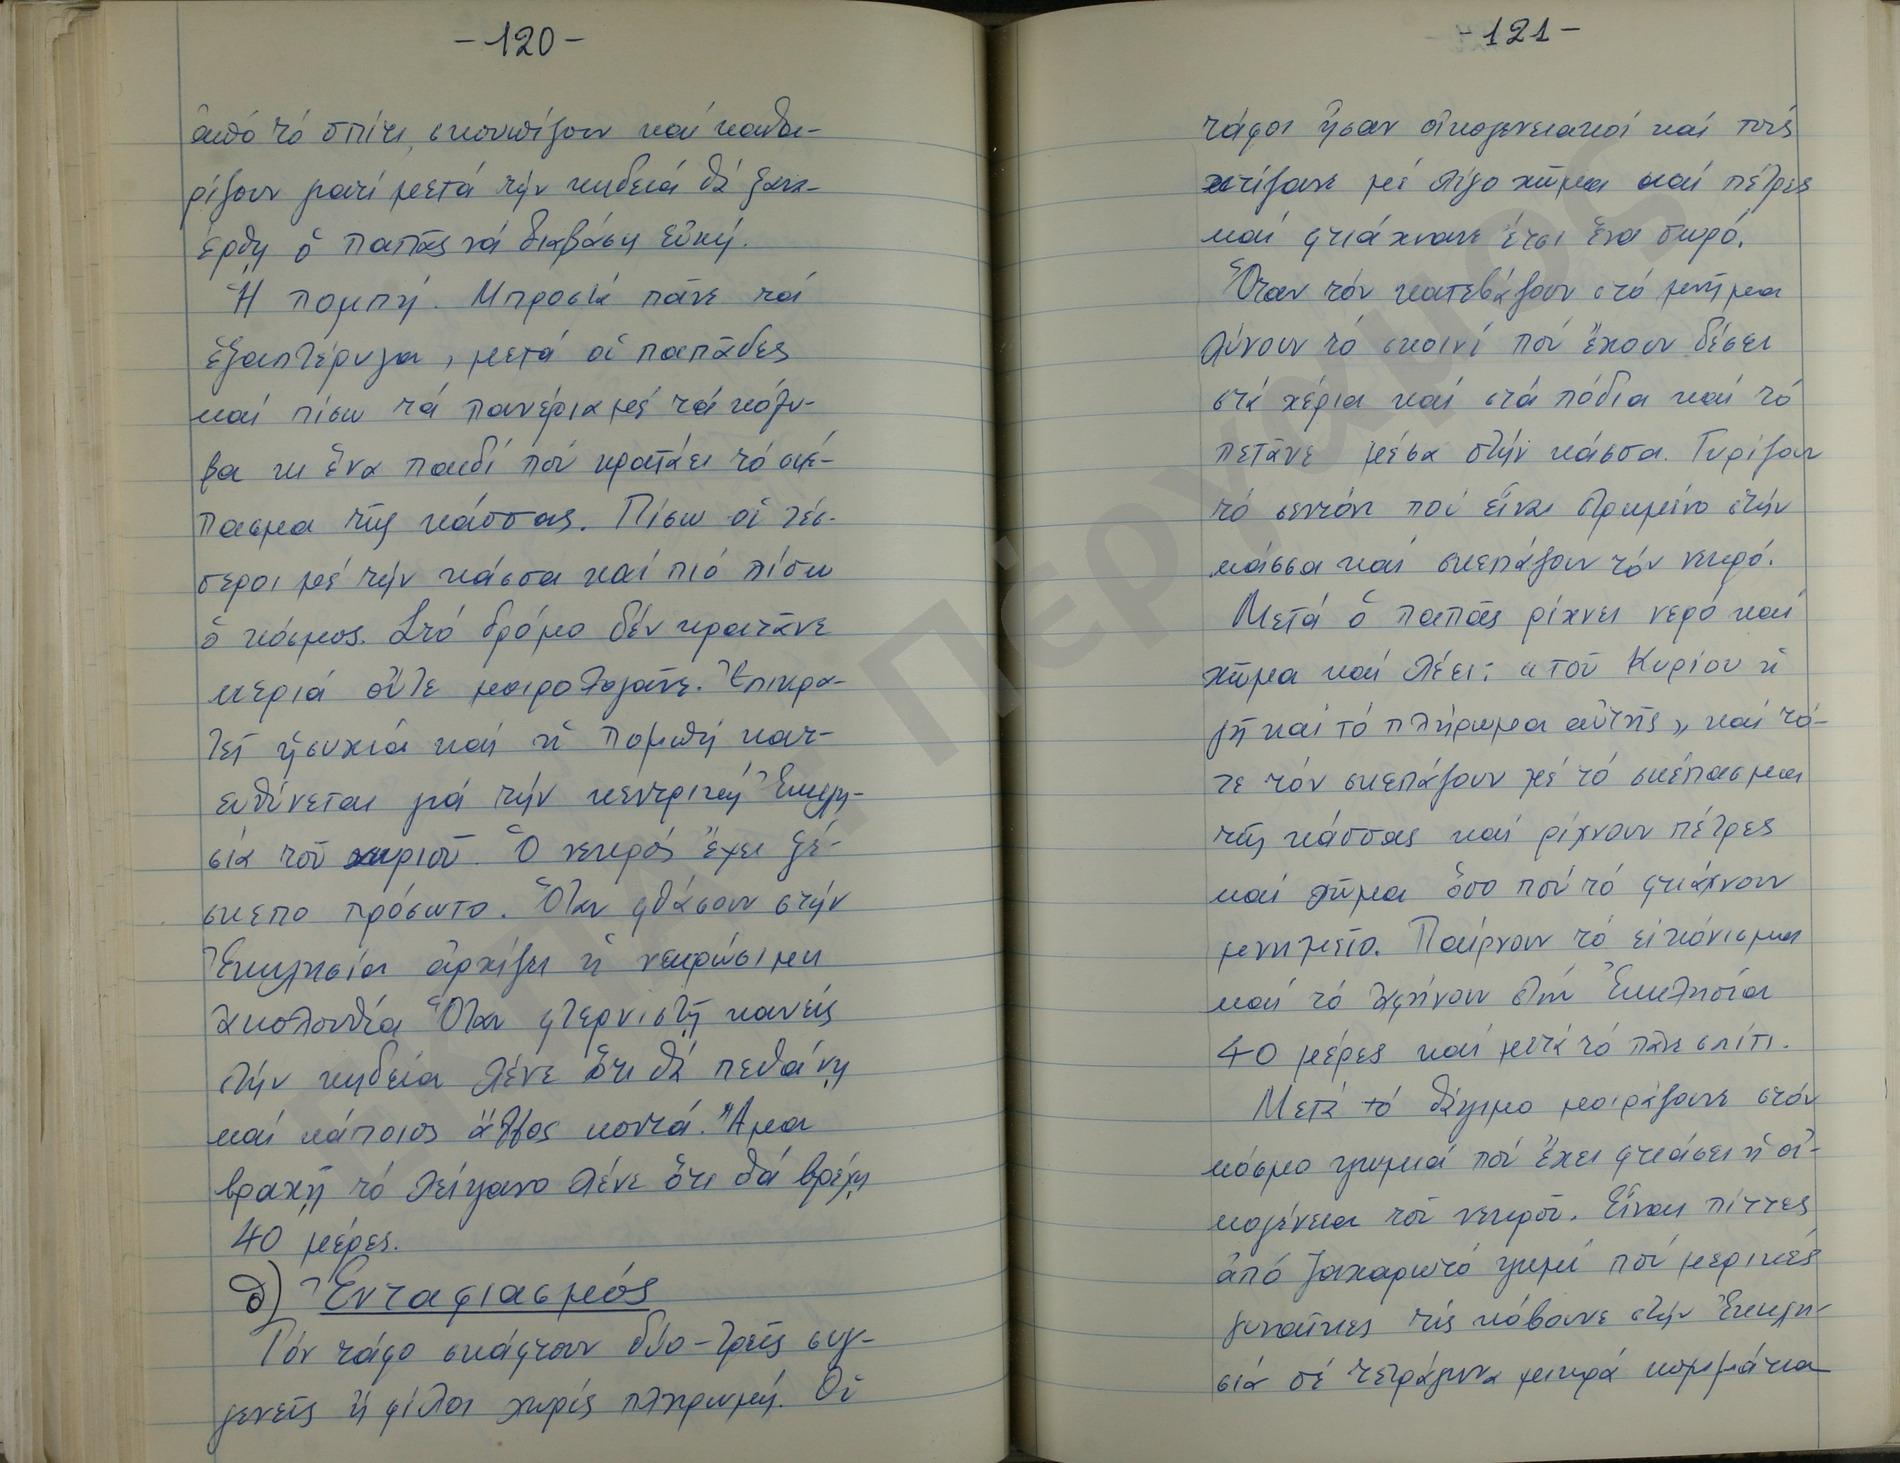 -120-
ἀπό τό σπίτι, σκουπίζουν καί καθα-
ρίζουν γιατί μετά τήν κηδεία θά ξανα-
έρθη ὁ παπᾶς νά διαβάση εὐχή.
Ἡ πομπή. Μπροστά πᾶνε τά
ἑξαπτέρυγα, μετά οἱ παπᾶδες
καί πίσω τά πανέρια μέ τά κόλυ-
βα κι ἕνα παιδί πού κρατάει τό σκέ-
πασμα τῆς κάσσας. Πίσω οἱ τέσ-
σεροι μέ τήν κάσσα καί πιό πίσω
ὁ κόσμος. Στό δρόμο δέν κρατᾶνε
κεριά οὔτε μοιρολογᾶνε. Ἐπικρα-
τεῖ ἡσυχία καί ἡ πομπή κατ-
ευθύνεται γιά τήν κεντρική Ἐκκλη-
σία τοῦ χωριοῦ. Ὁ νεκρός ἔχει ξέ-
σκεπο πρόσωπο. Ὅταν φθάσουν στήν
Ἐκκλησία ἀρχίζει ἡ νεκρώσιμη
ἀκολουθία Ὅταν φτερνιστῆ κανείς
στήν κηδεία λένε ὅτι θά πεθάνη
καί κάποιος ἄλλος κοντά. Ἅμα
βραχῆ τό λείψανο λένε ὅτι θά βρέχη
40 μέρες.
δ) Ἐνταφιασμός
Τόν τάφο σκάφτουν δύο-τρεῖς συγ-
γενεῖς ἤ φίλοι χωρίς πληρωμή. Οἱ
-121-
τάφοι ἦσαν οἰκογενειακοί καί τούς
χτίζανε μέ λίγο χῶμα καί πέτρες
καί φτιάχνανε ἔτσι ἕνα σωρό.
Ὅταν τόν κατεβάζουν στό μνῆμα
λύνουν τό σκοινί πού ἔχουν δέσει
στά χέρια καί στά πόδια καί τό
πετᾶνε μέσα στήν κάσσα. Γυρίζουν
τό σεντόνι πού εἶναι στρωμένο στήν
κάσσα καί σκεπάζουν τόν νεκρό.
Μετά ὁ παπᾶς ρίχνει νερό καί
χῶμα καί λέει: «τοῦ Κυρίου ἡ
γῆ καί τό πλήρωμα αὐτῆς» καί τό-
τε τόν σκεπάζουν μέ τό σκέπασμα
τῆς κάσσας καί ρίχνουν πέτρες
καί χῶμα ὅσο πού τό φτιάχνουν
μνημεῖο. Παίρνουν τό εἰκόνισμα
καί τό ἀφήνουν στήν Ἐκκλησία
40 μέρες καί μετά τό πᾶνε σπίτι.
Μετά τό θάψιμο μοιράζουνε στόν
κόσμο ψωμιά πού ἔχει φτιάσει ἡ οἰ-
κογένεια τοῦ νεκροῦ. Εἶναι πίττες
ἀπό ζαχαρωτό ψωμί πού μερικές
γυναῖκες τίς κόβουνε στήν Ἐκκλη-
σιά σέ τετράγωνα μικρά κομμάτια